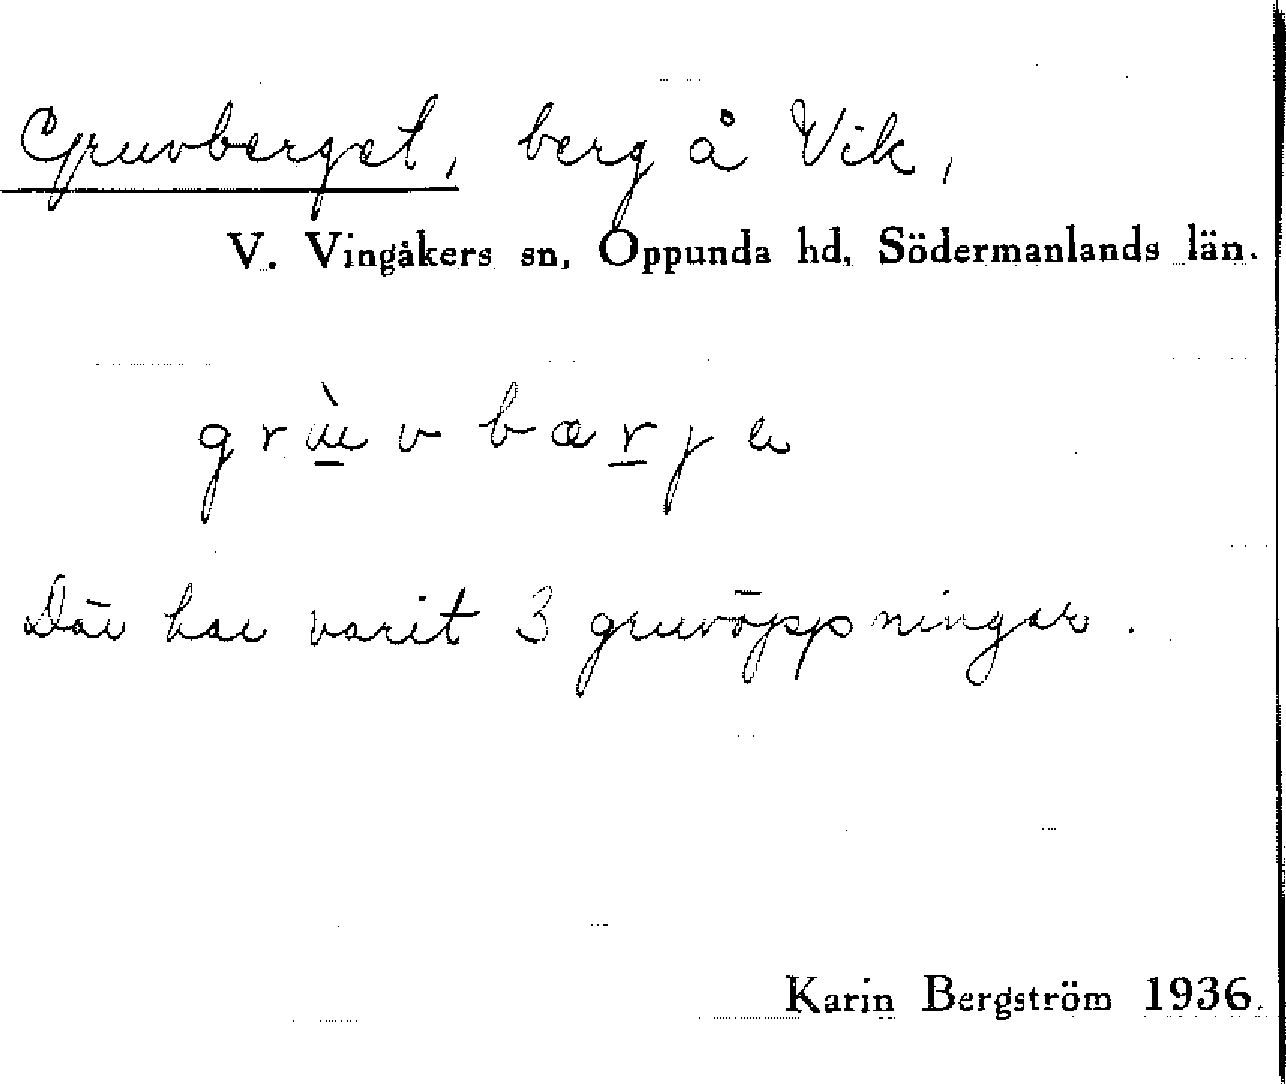 Gruvberget, berg å Vik,
V. Vingåkers sn, Oppunda hd, Södermanlands län.
grùvbærja
Där har varit 3 gruvöppningar.
Karin Bergström 1936.